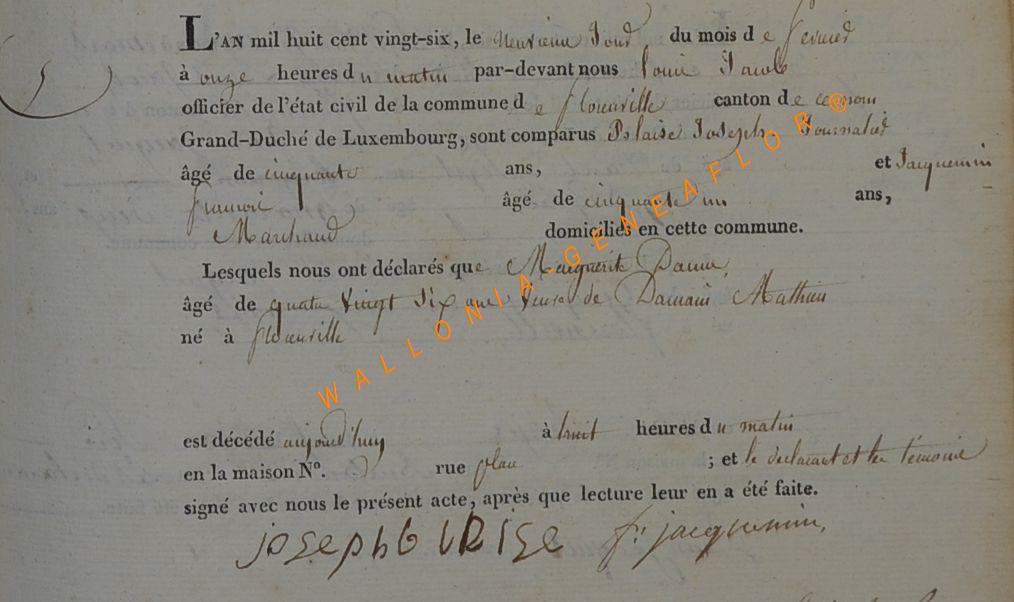 L'AN mil huit cent vingt-six, le neuvieme Jour du mois de fevrier
à onze heures du matin par-devant nous Louis
officier de l'état civil de la commune de florenville canton de ce nom
Grand-Duché de Luxembourg, sont comparus Blaise Joseph Journalier
âgé de cinquante ans, et Jacquemin
françois âgé de cinquante un ans,
Marchand domiciliés en cette commune.
Lesquels nous ont déclarés que Marguerite
âgé de quatre vingt six ans veuve de Mathieu
né à florenville
est décédé aujourd'huy à huit heures du matin
en la maison N°. rue ; et le declarant et les temoins
signé avec nous le présent acte, après que lecture leur en a été faite.
joseph blaise f. jacquemin,
WALLONIA-GENEAFLOR®